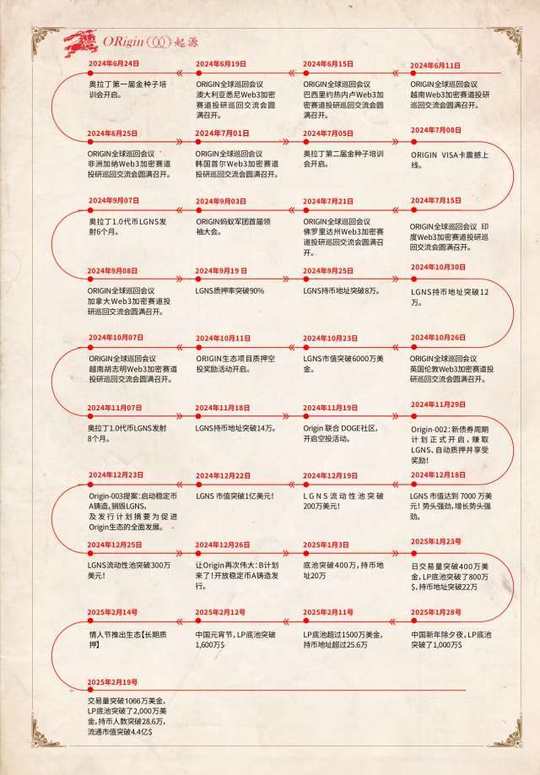 ORigin 起源
2024年6月24日
奥拉丁第一届金种子培
训会开启。
2024年6月19日
ORIGIN全球巡回会议
澳大利亚悉尼Web3加密
赛道投研巡回交流会圆
满召开。
2024年6月15日
ORIGIN全球巡回会议
巴西里约热内卢Web3加
密赛道投研巡回交流会圆
满召开。
2024年6月11日
ORIGIN全球巡回会议
越南Web3加密赛道投研
巡回交流会圆满召开。
2024年6月25日
ORIGIN全球巡回会议
非洲加纳Web3加密赛道
投研巡回交流会圆满召开。
2024年7月01日
ORIGIN全球巡回会议
韩国首尔Web3加密赛道
投研巡回交流会圆满召开。
2024年7月05日
奥拉丁第二届金种子培训
会开启。
2024年7月08号
ORIGIN VISA卡震撼上
线。
2024年9月07日
奥拉丁1.0代币LGNS发
射6个月。
2024年9月03日
ORIGIN蚂蚁军团首届领
袖大会。
2024年7月21日
ORIGIN全球巡回会议
佛罗里达州Web3加密赛
道投研巡回交流会圆满召
开。
2024年7月15日
ORIGIN全球巡回会议 印
度Web3加密赛道投研巡
回交流会圆满召开。
2024年9月08日
ORIGIN全球巡回会议
加拿大Web3加密赛道投
研巡回交流会圆满召开。
2024年9月19 日
LGNS质押率突破90%
2024年9月25日
LGNS持币地址突破8万。
2024年10月30日
LGNS持币地址突破12
万。
2024年10月07日
ORIGIN全球巡回会议
越南胡志明Web3加密赛道
投研巡回交流会圆满召开。
2024年10月11日
ORIGIN生态项目质押空
投奖励活动开启。
2024年10月23日
LGNS市值突破6000万美
金。
2024年10月26日
ORIGIN全球巡回会议
英国伦敦Web3加密赛道投
研巡回交流会圆满召开。
2024年11月07日
奥拉丁1.0代币LGNS发射
8个月。
2024年11月18日
LGNS持币地址突破14万。
2024年11月19日
Origin 联合 DOGE社区,
开启空投活动。
2024年11月29日
Origin-002：新债券周期
计划正式开启，赚取
LGNS、自动质押并享受
奖励！
2024年12月23日
Origin-003提案：启动稳定币
A铸造，销毁LGNS,
及发行计划摘要为促进
Origin生态的全面发展。
2024年12月22日
LGNS 市值突破1亿美元！
2024年12月19日
LGNS流动性池突破
200万美元！
2024年12月18日
LGNS 市值达到 7000 万美
元！势头强劲,增长势头强
劲。
2024年12月25日
LGNS流动性池突破300万
美元！
2024年12月26日
让Origin再次伟大：B计划
来了！开放稳定币A铸造发
行。
2025年1月3日
底池突破400万，持币地
址20万
2025年1月23号
日交易量突破400万美
金，LP底池突破了800万
$，持币地址突破22万
2025年2月14号
情人节推出生态【长期质
押】
2025年2月12号
中国元宵节，LP底池突破
1,600万$
2025年2月11号
LP底池超过1500万美金，
持币地址超过25.6万
2025年1月28号
中国新年除夕夜，LP底池
突破了1,000万$
2025年2月19号
交易量突破1066万美金，
LP底池突破了2,000万美
金，持币人数突破28.6万，
流通市值突破4.4亿$